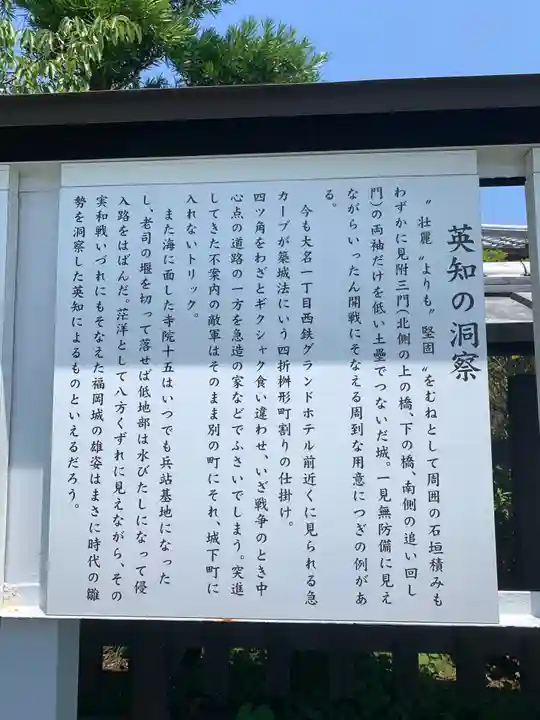 英知の洞察
“壮麗„よりも“堅固„をむねとして周囲の石垣積みも
わずかに見附三門（北側の上の橋、下の橋、南側の追い回し
門）の両袖だけを低い土塁でつないだ城。一見無防備に見え
ながらいったん開戦にそなえる周到な用意につぎの例があ
る。
今も大名一丁目西鉄グランドホテル前近くに見られる急
カーブが築城法にいう四折桝形町割りの仕掛け。
四ツ角をわざとギクシャク食い違わせ、いざ戦争のとき中
心点の道路の一方を急造の家などでふさいでしまう。突進
してきた不案内の敵軍はそのまま別の町にそれ、城下町に
入れないトリック。
また海に面した寺院十五はいつでも兵站基地になった
し、老司の堰を切って落せば低地部は水びたしになって侵
入路をはばんだ。茫洋として八方くずれに見えながら、その
実和戦いづれにもそなえた福岡城の雄姿はまさに時代の雛
勢を洞察した英知によるものといえるだろう。